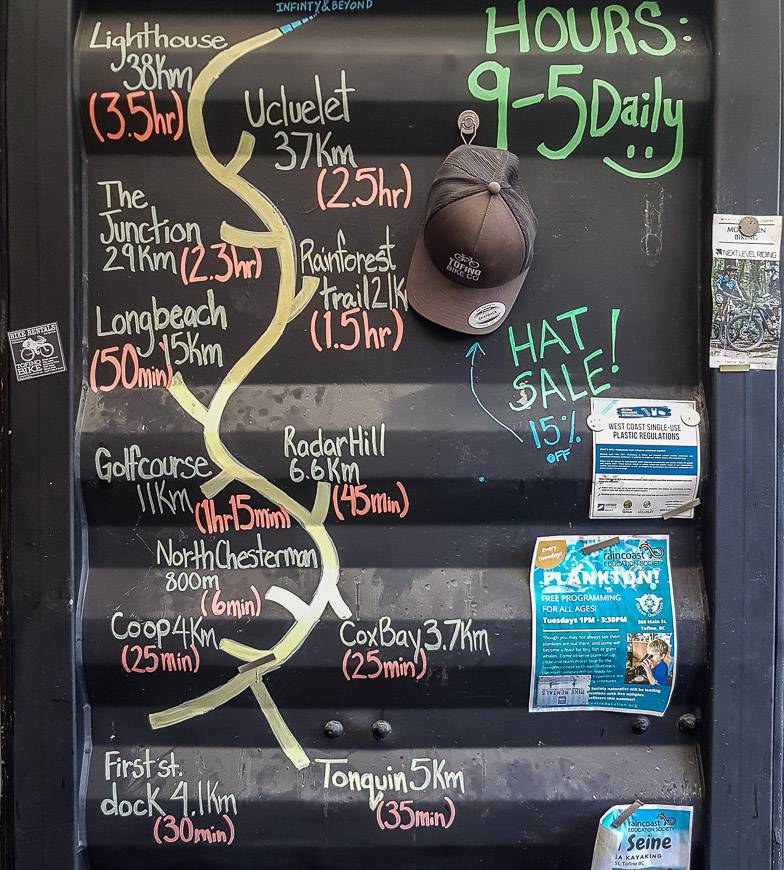 INFINTY & BEYOND
HOURS:
9-5 Daily
Lighthouse
38Km
(3.5hr)
Ucluelet
37Km
(2.5hr)
The
Junction
29Km (2.3hr)
Rainforest
trail 21K
(1.5hr)
Longbeach
15Km
(50min)
Golfcourse
11Km
(1hr15min)
RadarHill
6.6Km
(45min)
North Chesterman
800m
(6min)
Coop 4Km
(25min)
CoxBay 3.7Km
(25min)
First st.
dock 4.1Km
(30min)
Tonquin 5Km
(35min)
TOFINO
BIKE CO
HAT
SALE!
15%
OFF
BIKE RENTALS
TOFINO
BIKE
NEXT LEVEL RIDING
WEST COAST SINGLE-USE
PLASTIC REGULATIONS
Every
Tuesday!
raincoast
EDUCATION SOCIETY
PLANKTON!
FREE PROGRAMMING
FOR ALL AGES!
Tuesdays 1PM - 3:30PM
368 Main St.
Tofino, BC
raincoast
EDUCATION SOCIETY
Seine
KAYAKING
St, Tofino BC